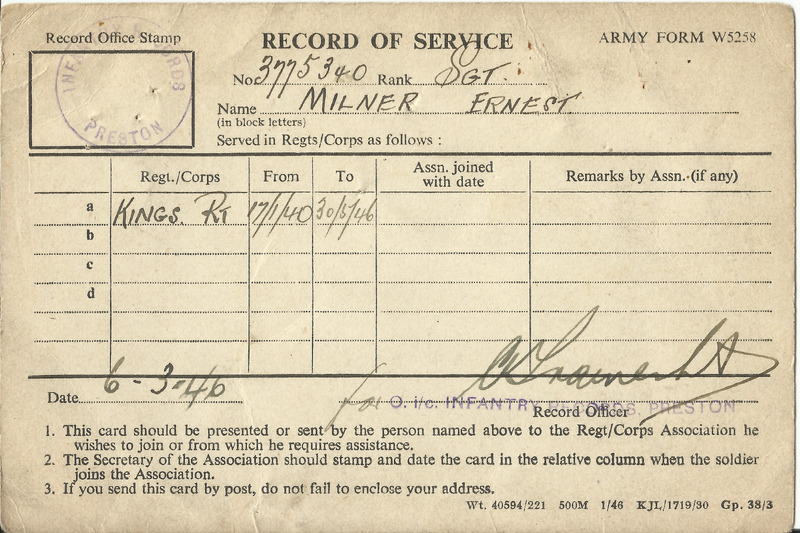 Record Office Stamp
RECORD OF SERVICE
ARMY FORM W5258
INFANTRY RECORDS
PRESTON
No. 3775340 Rank SGT.
Name MILNER ERNEST
(in block letters)
Served in Regts/Corps as follows :
Regt./Corps From To Assn. joined with date Remarks by Assn. (if any)
a KINGS. RT 17/1/40 30/5/46
b
c
d
Date 6-3-46
for O. i/c. INFANTRY RECORDS, PRESTON
Record Officer
1. This card should be presented or sent by the person named above to the Regt/Corps Association he
wishes to join or from which he requires assistance.
2. The Secretary of the Association should stamp and date the card in the relative column when the soldier
joins the Association.
3. If you send this card by post, do not fail to enclose your address.
Wt. 40594/221 500M 1/46 KJL/1719/30 Gp. 38/3